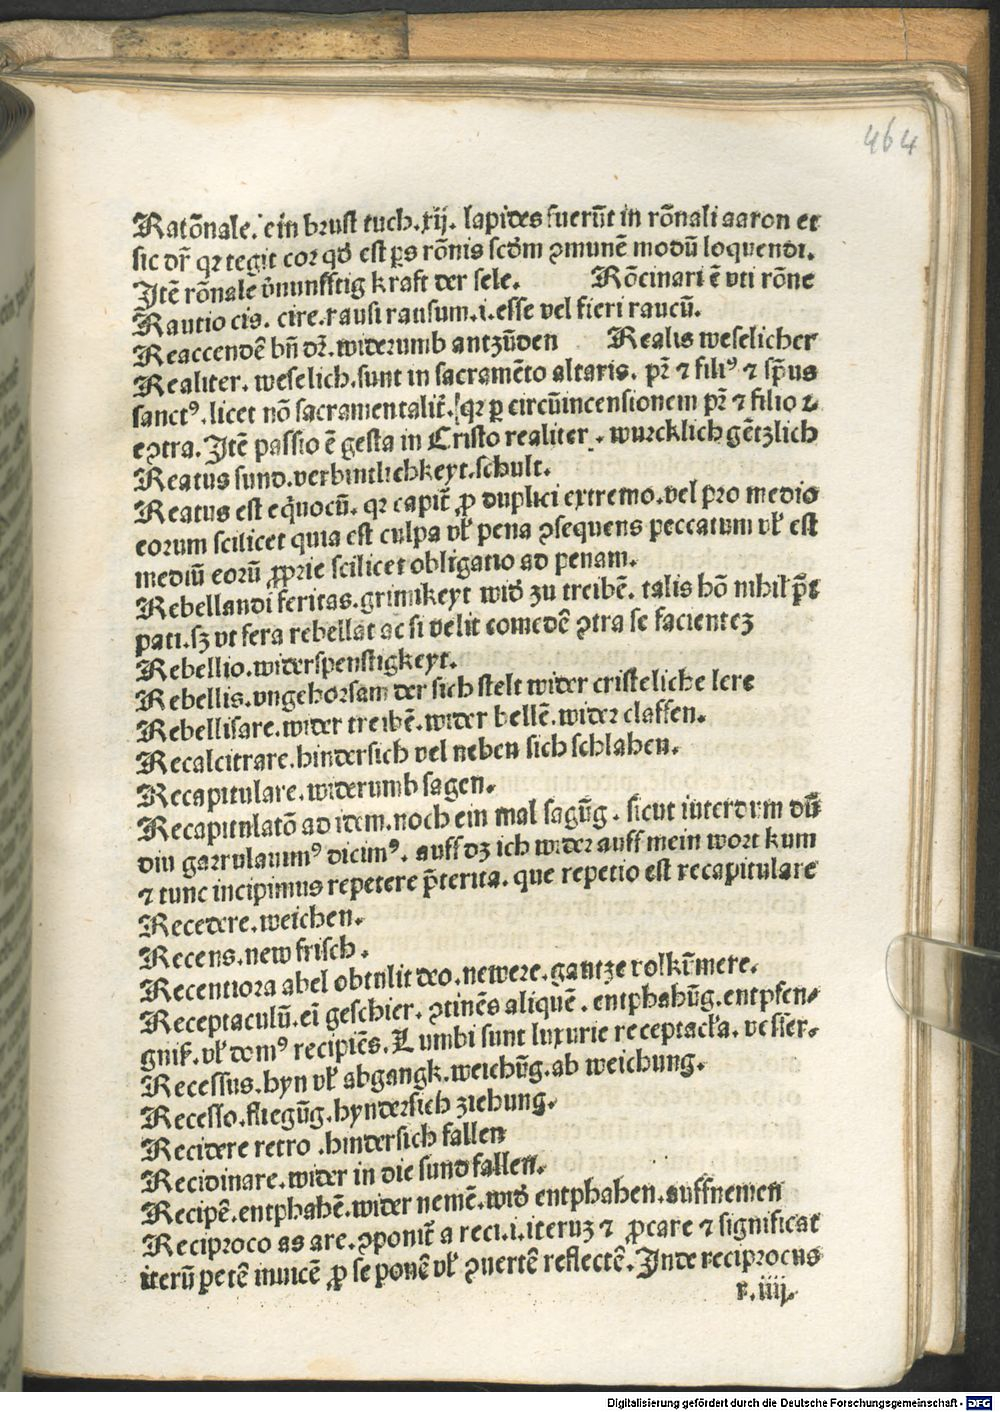 464
Ratōnale. ein brust tuch. xij. lapides fuerūt in rōnali aaron et
sic dr̄ qꝛ tegit cor qđ est ꝑs rōnis scđm ꝯmunē modū loquendi.
Itē rōnale v̄nunfftig kraft der sele. Rōcinari ē vti rōne
Rautio cis. cire. rausi rausum. i. esse vel fieri raucū.
Reaccendē bn̄ dꝛ̄. widerumb antzūden Realis weselicher
Realiter. weselich. sunt in sacramēto altaris. pr̄ ⁊ filiꝰ ⁊ sp̄us
sanctꝰ. licet nō sacramentalit̄. qꝛ ꝑ circūincensionem pr̄ ⁊ filio ⁊
extra. Itē passio ē gesta in Cristo realiter. wurcklich gētzlich
Reatus sund. verbintlichkeyt. schult.
Reatus est eq̄uocū. qꝛ capit̄ ꝓ duplici extremo. vel pro medio
eorum scilicet quia est culpa vł pena ꝯsequens peccatum vł est
mediū eorū ꝓprie scilicet obligatio ad penam.
Rebellandi feritas. grimikeyt wiđ zu treibē. talis hō nihil p̄t
pati. sꝫ vt fera rebellat ac si velit comedē ꝯtra se facientez
Rebellio. widerspenstigkeyt.
Rebellis. vngehorsam der sich stelt wider cristeliche lere
Rebellisare. wider treibē. wider bellē. wider claffen.
Recalcitrare. hindersich vel neben sich schlahen.
Recapitulare. widerumb sagen.
Recapitulatō ad idem. noch ein mal sagūg. sicut interdum dū
diu garrulauimꝰ dicimꝰ. auff dz ich wider auff mein wort kum
⁊ tunc incipimus repetere p̄terita. que repetio est recapitulare
Recedere. weichen.
Recens. new frisch.
Recentiora abel obtulit deo. newere. gantze volkūmere.
Receptaculū. ei geschier. ꝯtinēs aliquē. entphahūg. entpfen-
gniß. vł domꝰ recipiēs. Lumbi sunt luxurie receptacła. vesser-
Recessus. hyn vł abgangk. weichūg. ab weichung.
Recesso. fliegūg. hyndersich ziehung.
Recidere retro. hindersich fallen
Recidinare. wider in die sund fallen.
Recipē. entphahē. wider nemē. wiđ entphahen. auffnemen
Reciproco as are. ꝯponit̄ a reci. i. iteruz ⁊ ꝓcare ⁊ significat
iterū petē inuicē ꝓ se ponē vł ꝯuertē reflectē. Inde reciprocus
r. iiij.
Digitalisierung gefördert durch die Deutsche Forschungsgemeinschaft - DFG